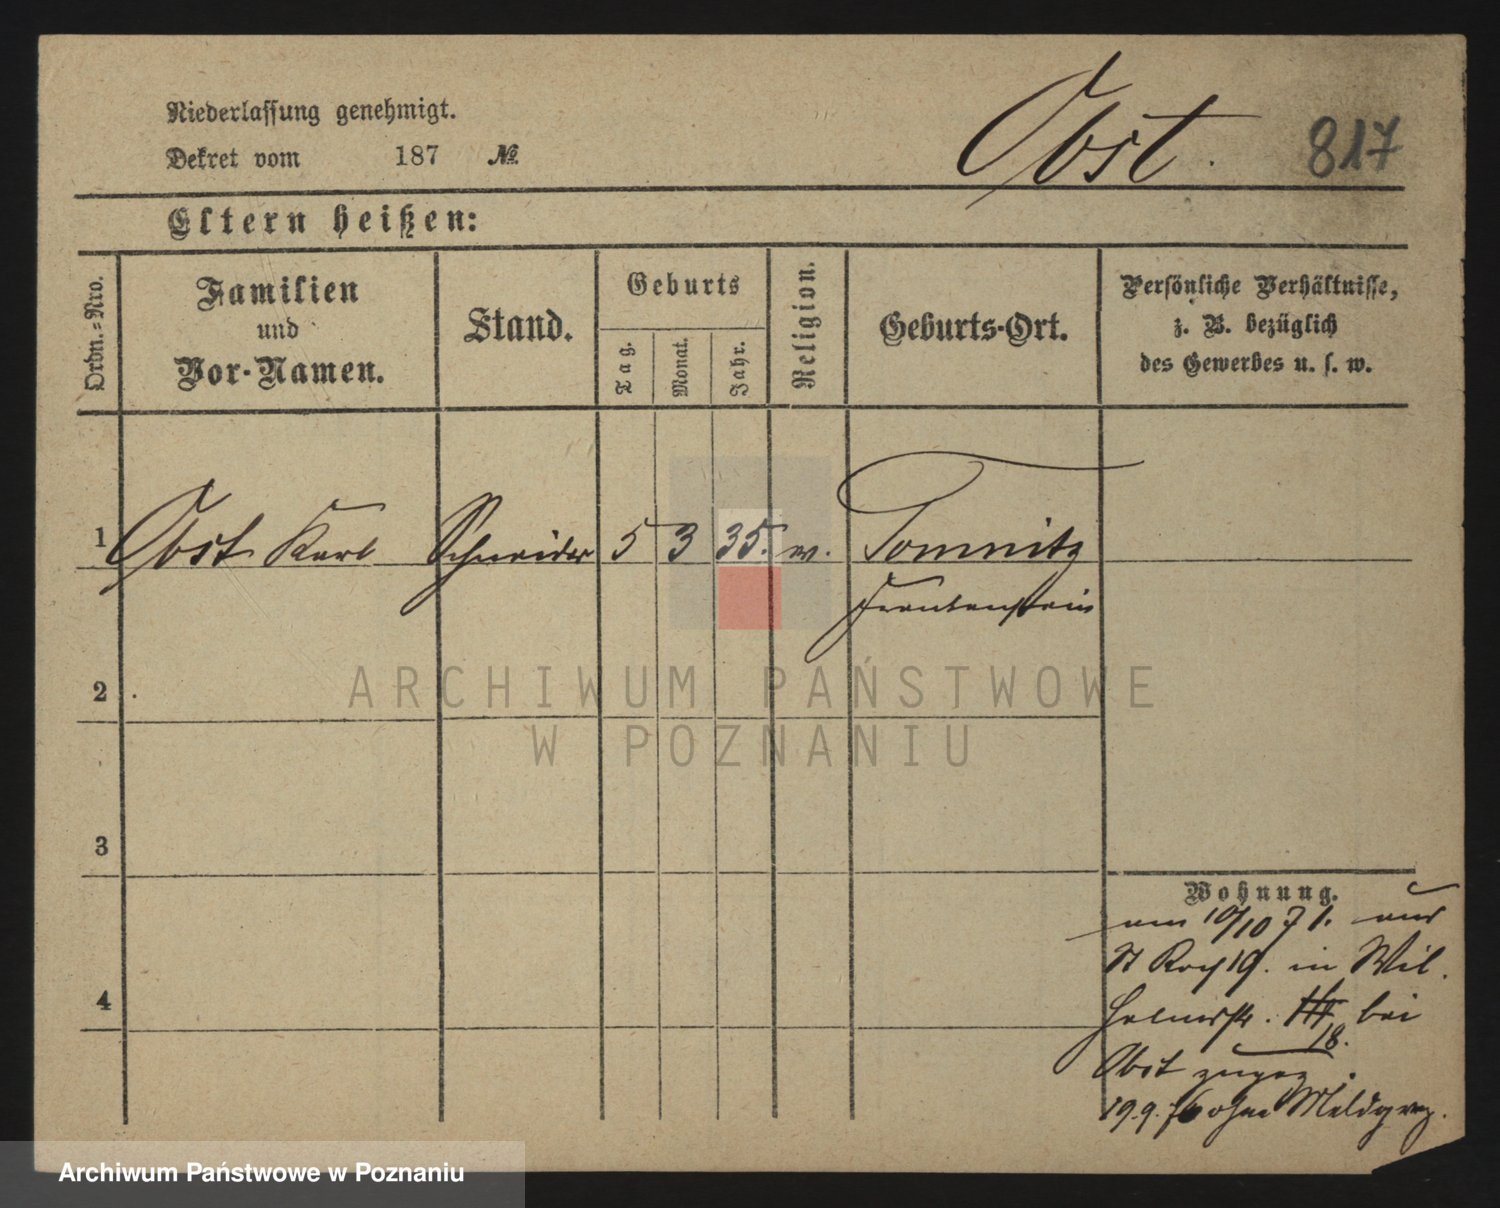 Niederlassung genehmigt.
Dekret vom 187 №
Obst.
817
Eltern heißen:
Ordn.=Nro.
Familien
und
Vor-Namen.
Stand.
Geburts
Tag.
Monat.
Jahr.
Religion.
Geburts-Ort.
Persönliche Verhältnisse,
z. B. bezüglich
des Gewerbes u. s. w.
1 Obst Karl Schneider 5 3 35. Tomnitz
Frankenstein
2
3
4
Wohnung.
am 10/10 71. aus
St Roch 19. in Wil.
helmstr. bei
18.
Obst zugez.
19.9.76 ohne
ARCHIWUM PAŃSTWOWE
W POZNANIU
Archiwum Państwowe w Poznaniu